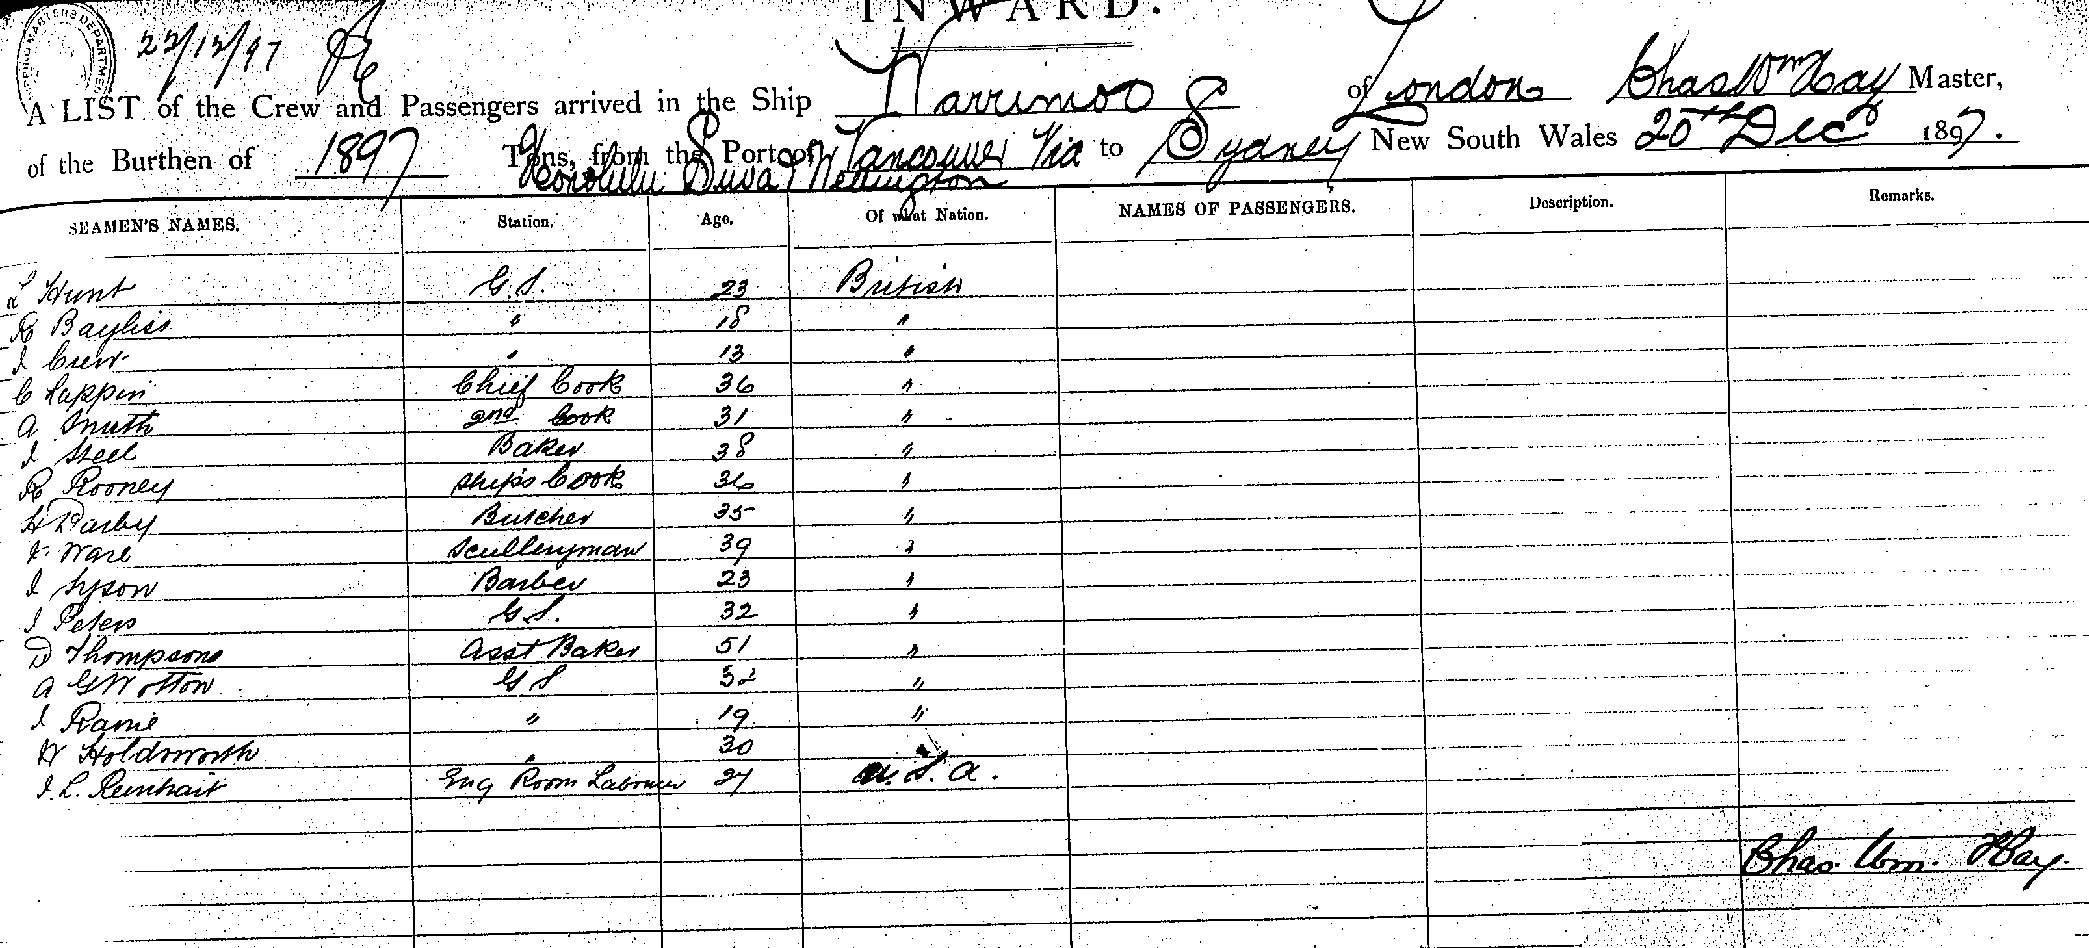 INWARD.
22/12/97
A LIST of the Crew and Passengers arrived in the Ship Warrimoo S of London Chas Wm Hay Master,
of the Burthen of 1897 Tons, from the Port of Vancouver Via to Sydney New South Wales 20th Dec 1897.
Honolulu Suva & Wellington
SEAMEN'S NAMES. Station. Age. Of what Nation. NAMES OF PASSENGERS. Description. Remarks.
Hunt G.S. 23 British
R Bayliss " 18 "
J Crew " 13 "
C Lappin Chief Cook 36 "
A Smith 2nd Cook 31 "
J Steel Baker 38 "
R Rooney Ships Cook 36 "
H Darby Butcher 35 "
Ware Sculleryman 39 "
J Tyson Barber 23 "
J Peters G.S. 32 "
D Thompson Asst Baker 51 "
A G Wotton G S 32 "
J " 19 "
W Holdsworth " 30 "
J. L. Reinhart Eng Room Labourer 27 U.S.A.
Chas. Wm. Hay.